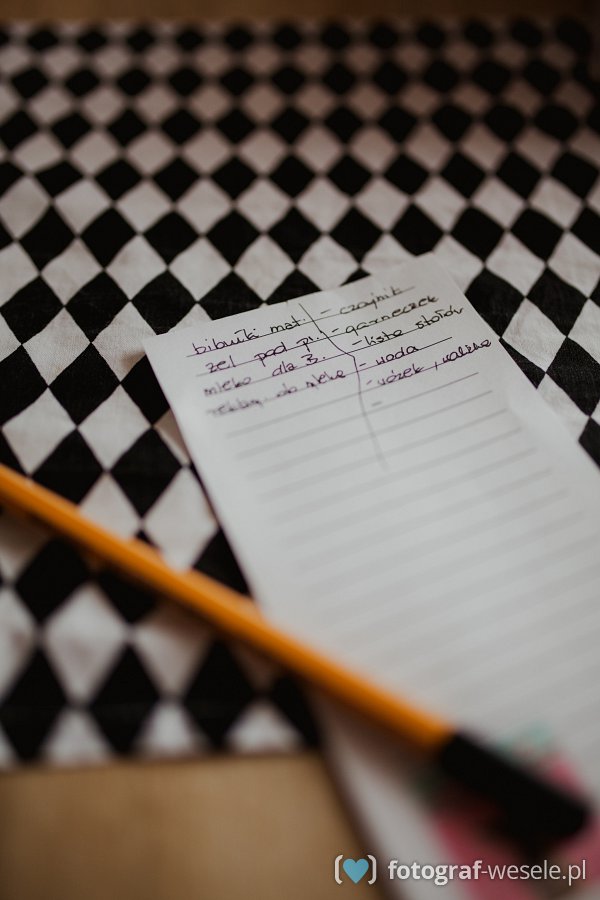 bibułki mat.
żel pod p.
mleko dla
do mleka
- czajnik
- garneczek
- lista stołów
- woda
- wózek, walizka
-
fotograf-wesele.pl